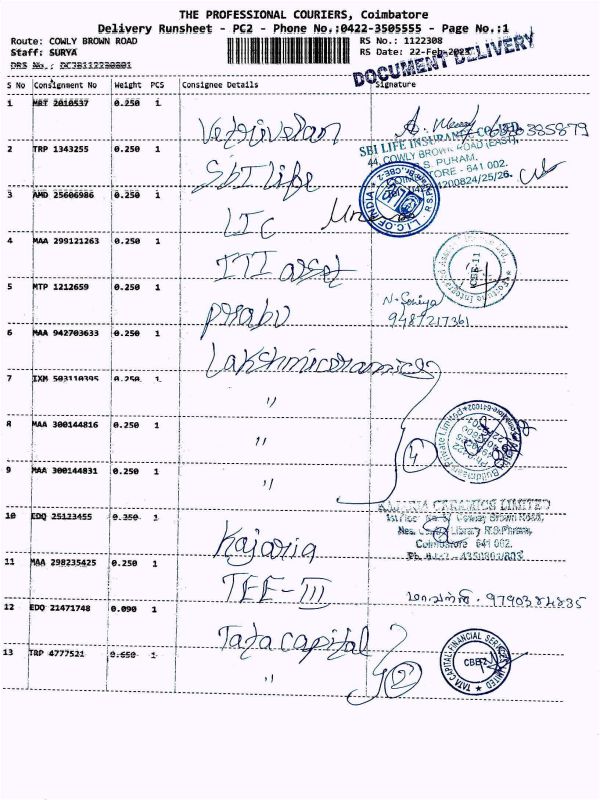 THE PROFESSIONAL COURIERS, Coimbatore
Delivery Runsheet - PC2 - Phone No.:0422-3505555 - Page No.:1
Route: COWLY BROWN ROAD RS No.: 1122308
Staff: SURYA RS Date: 22-Feb-2023
DRS No.: DC3B112230801
DOCUMENT DELIVERY
S No Consignment No Weight PCS Consignee Details Signature
1 MBT 2010537 0.250 1 Vetrivelan
2 TRP 1343255 0.250 1 SBI life
SBI LIFE INSURANCE CO LTD
44, COWLY BROWN ROAD (EAST),
R.S. PURAM,
641 002.
3 AMD 25606986 0.250 1 LIC
L.I.C. OF INDIA
4 MAA 299121263 0.250 1 ITI asset
CBE-11
5 MTP 1212659 0.250 1 Prabu
9487217361
6 MAA 942703633 0.250 1 Lakshmiceramics
7 IXM 503110395 0.250 1 "
8 MAA 300144816 0.250 1 " 4
9 MAA 300144831 0.250 1 "
Private Limited
10 EDQ 25123455 0.350 1 Kajaria
KAJARIA CERAMICS LIMITED
Cowley Brown Road,
Library R.S.Puram,
Coimbatore 641 002.
11 MAA 298235425 0.250 1 TEE-III 9790384835
12 EDQ 21471748 0.090 1 Tata capital
13 TRP 4777521 0.650 1 " 2
TATA CAPITAL FINANCIAL SERVICES LIMITED
CBE-2